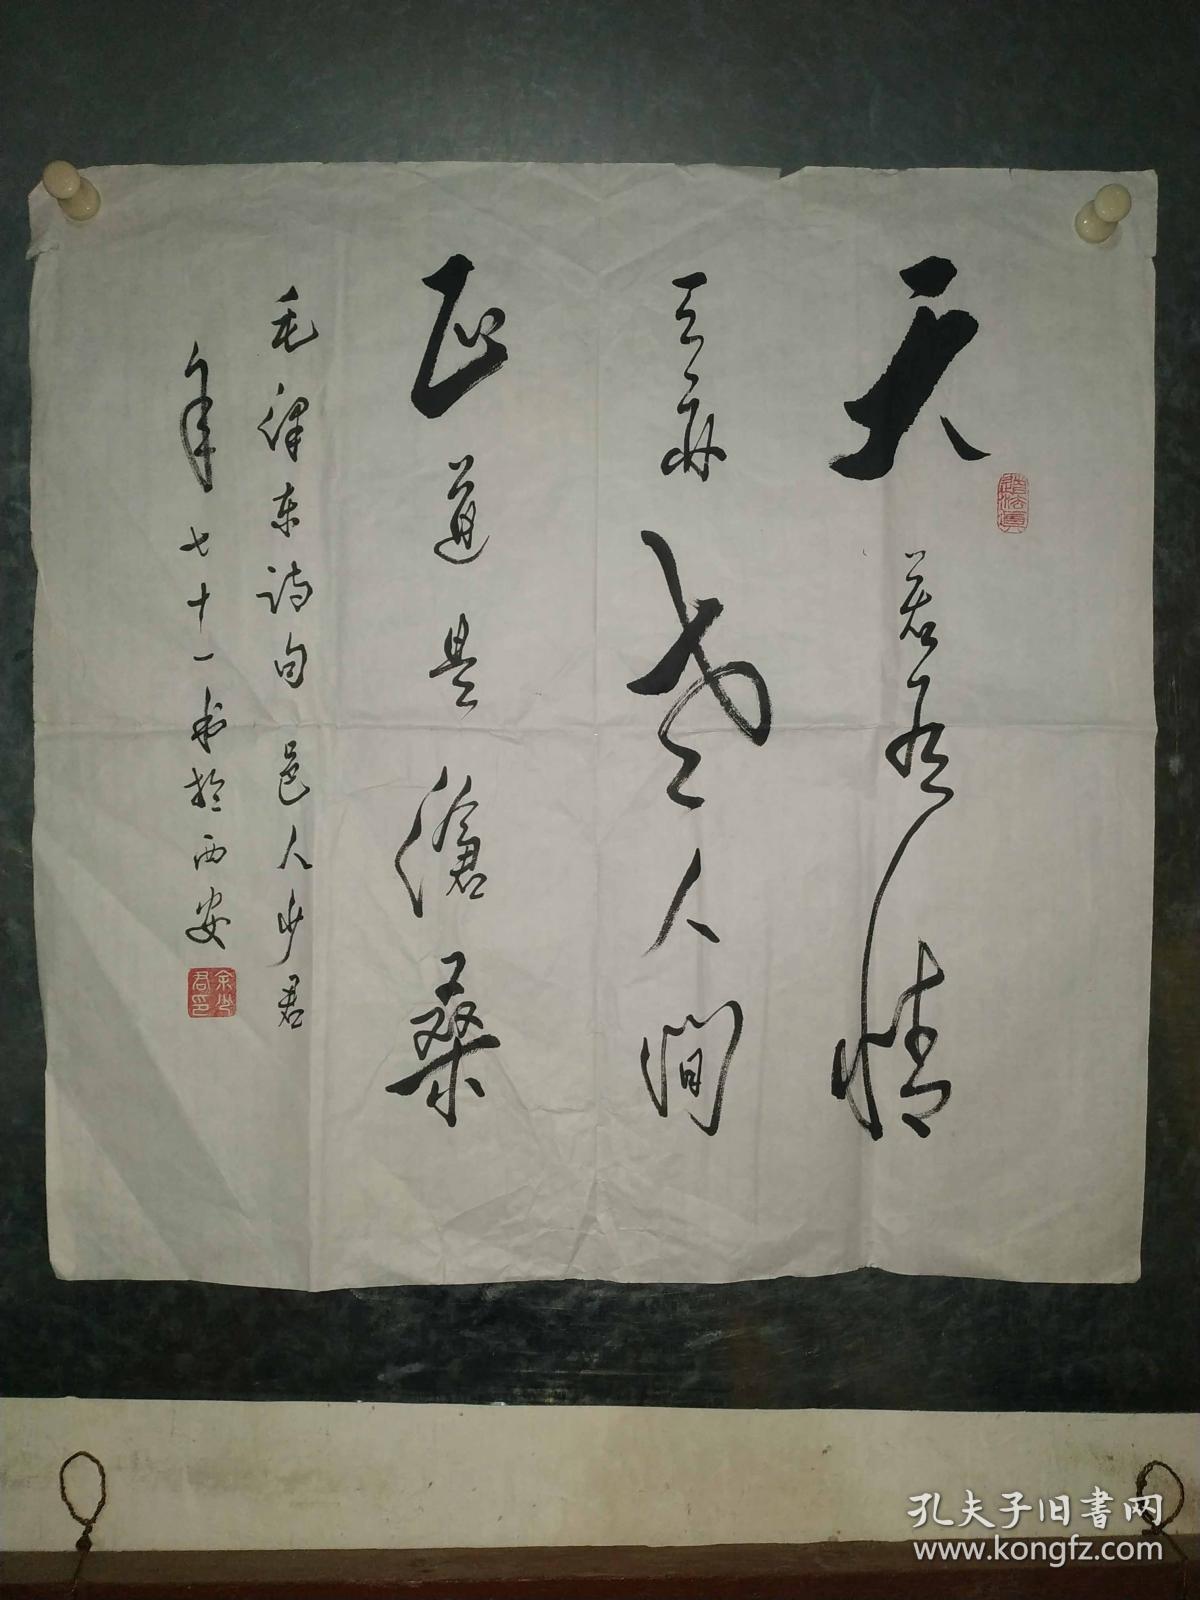 天若有情
天亦老人间
正道是滄桑
毛泽东诗句 邑人少君
年七十一书於西安
余少君印
孔夫子旧书网
www.kongfz.com